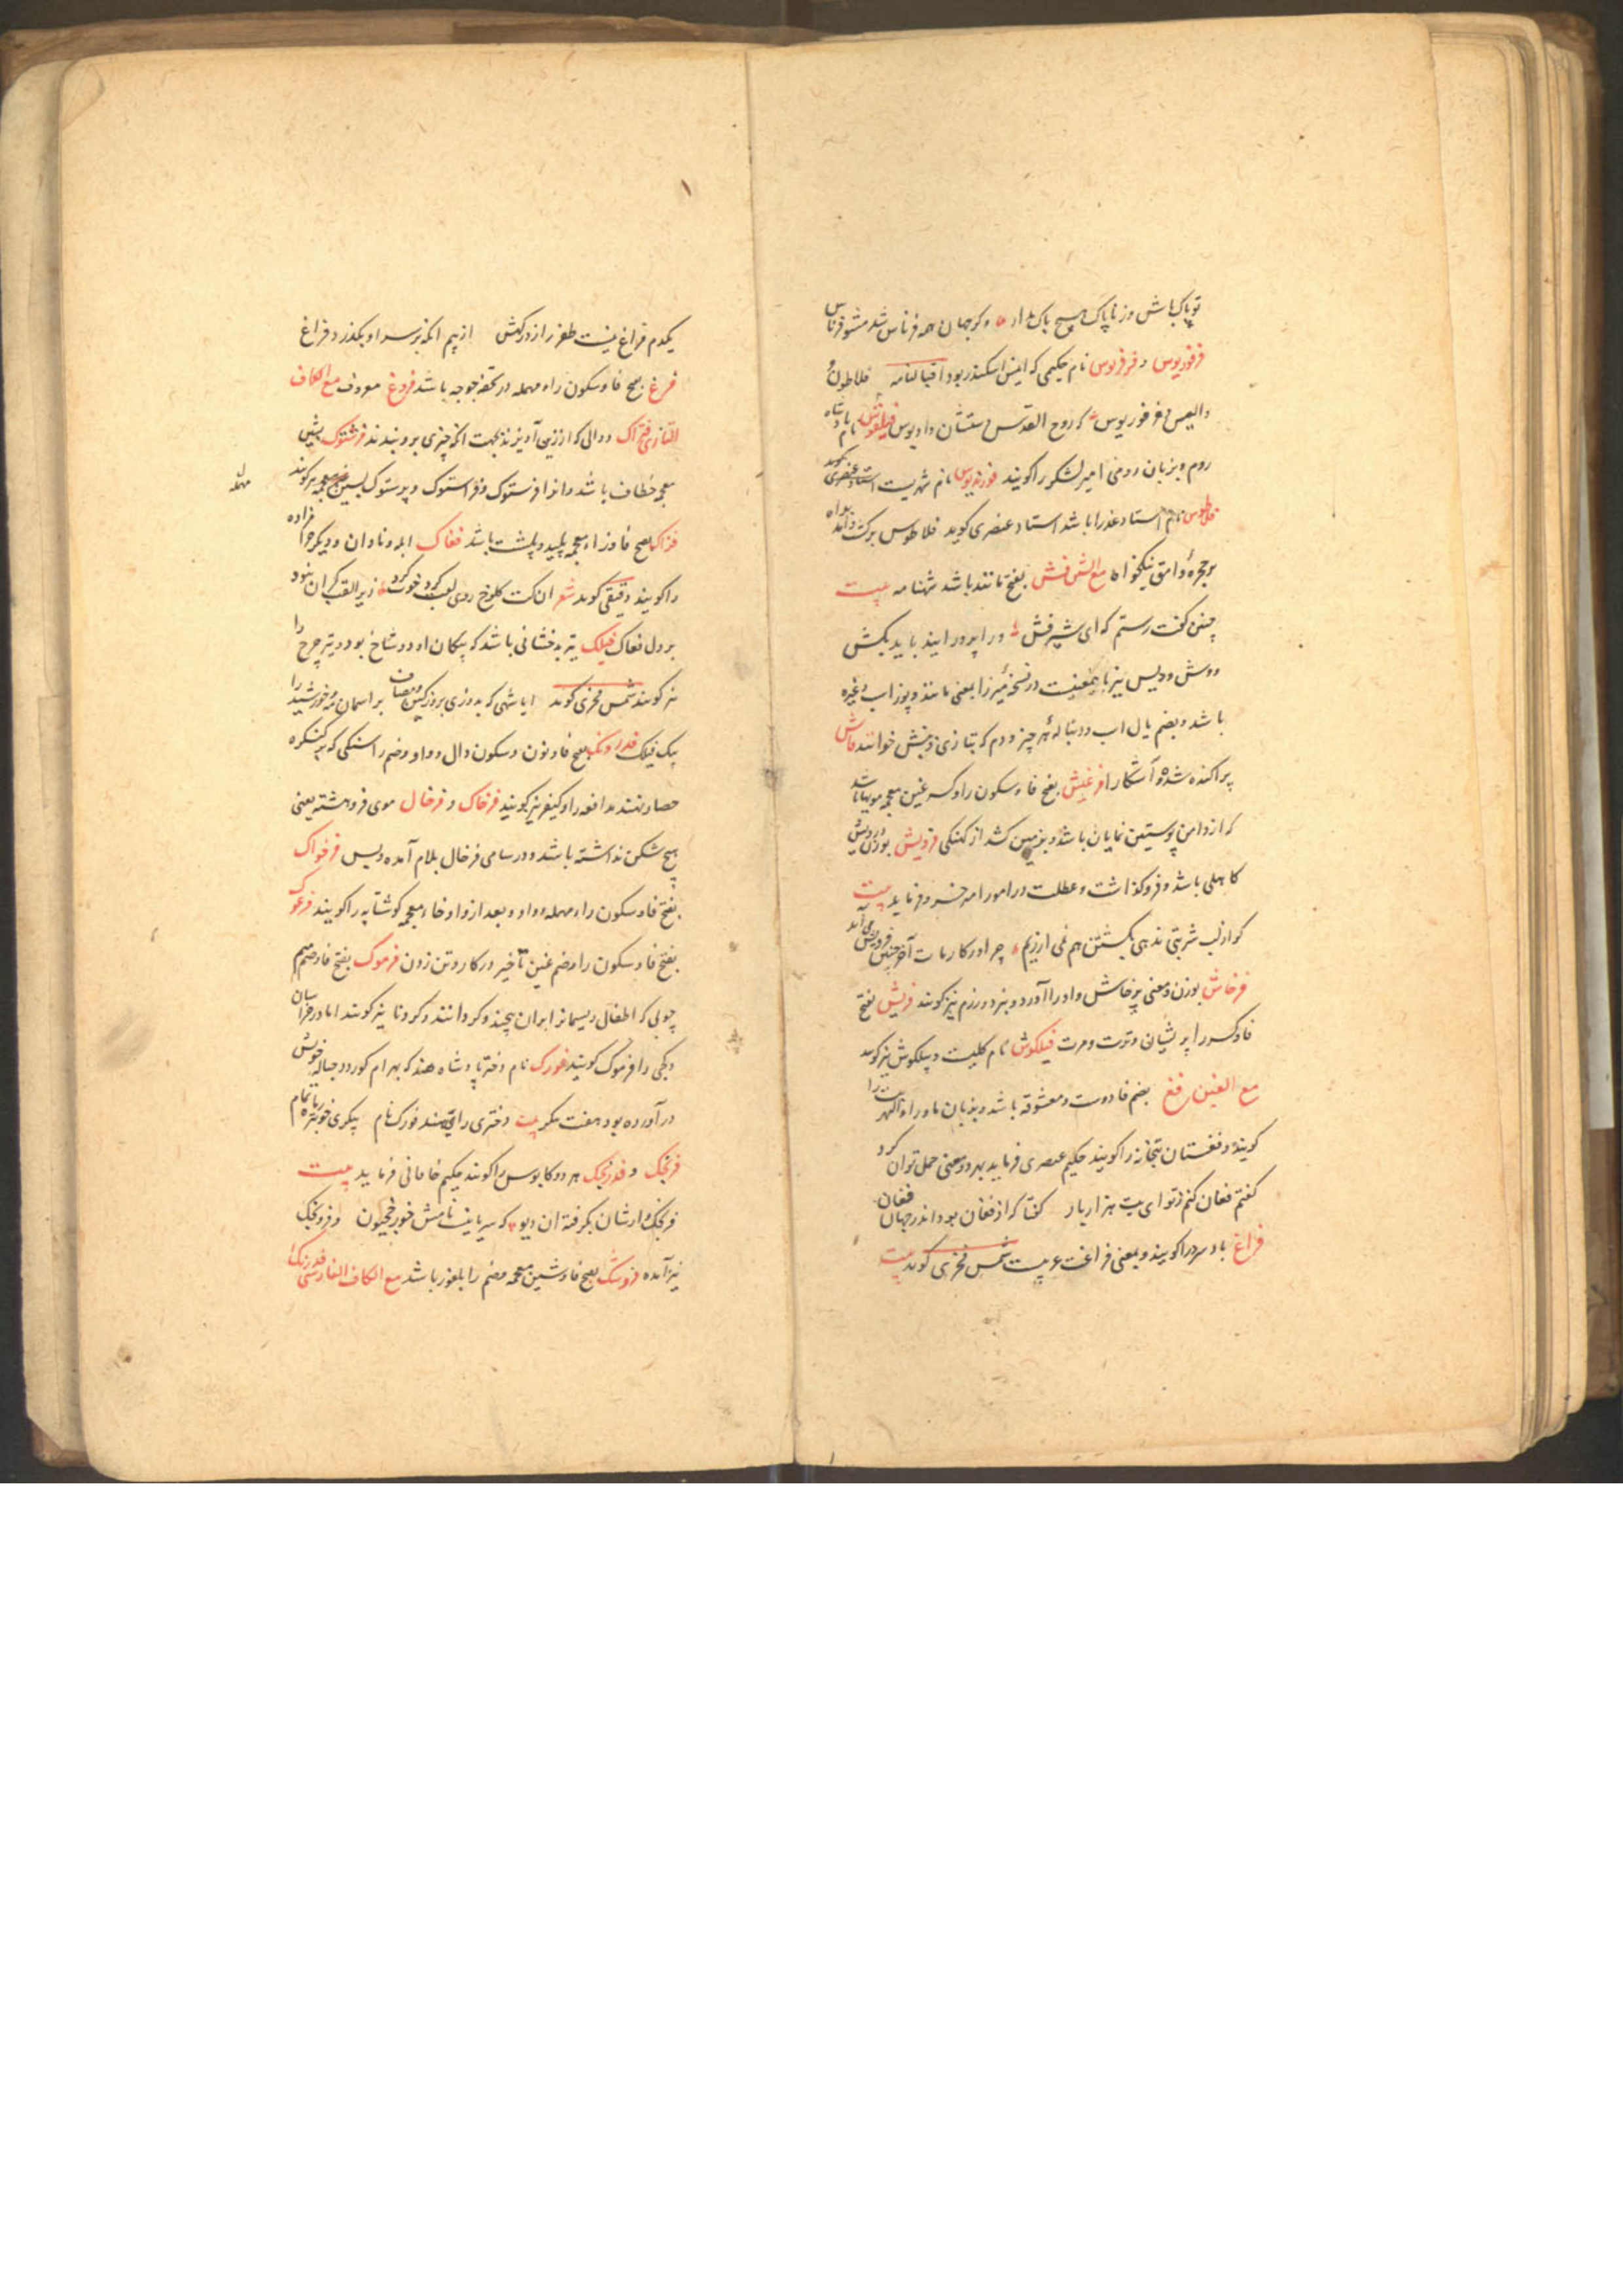 تو پاک باش و ز ناپاک هیچ باک مدار و کر جهان همه فرناس شد مشو فرناس
فرفوریوس و فرفریوس نام حکیمی که انیس اسکندر بود اقبالنامه فلاطون و
والیس و فرفوریوس که روح القدس دستشان داد بوس فیلقوس نام پادشاه
روم و بزبان رومی امیر لشکر را کویند فوزندیوس نام شهریست استاد عنصری کوید
فلاطوس نام استاد عذرا باشد استاد عنصری کوید فلاطوس برکشت و آمد براه
بر حجرهٔ وامق نیکخواه مع الشین فش بفتح مانند باشد شهنامه بیت
چنین کفت رستم که ای شیرفش ورا پرورانید باید بکش
ووش و دیس نیز باینمعنیست در نسخه میرزا بمعنی مانند و پوز اسب و غیره
باشد و بضم یال اسب و دنباله هر چیز و دم که بتازی ذنبش خوانند فاش
پراکنده شده و آشکارا فرغیش بفتح فا و سکون را و کسر غین معجمه مویها باشد
که از دامن پوستین نمایان باشد و بزمین کشد از کهنکی فرویش بوزن درویش
کاهلی باشد و فروکذاشت و عطلت در امور امیر خسرو فرماید بیت
کر از لب شربتی ندهی بکشتن هم نمی ارزیم چرا در کار ما ت آخر چنین فرویش می آید
فرخاش بوزن و معنی پرخاش و او را آورد و نبرد و رزم نیز کویند فریش بفتح
فا و کسر را پریشان و ترت و مرت فیلکوش نام کلیست و پیلکوش نیز کویند
مع الغین فغ بضم فا دوست و معشوقه باشد و بزبان ماوراءالنهر بت را
کویند و فغستان بتخانه را کویند حکیم عنصری فرماید بهر دو معنی حمل توان کرد
کفتم فغان کنم ز تو ای بت هزار بار کفتا که از فغان بود اندر جهان فغان
فراغ باد سرد را کویند و بمعنی فراغت عربیست شمس فخری کوید بیت
یکدم فراغ نیست ظفر را ز درکهش از بیم آنکه بر سر او بکذرد فراغ
فرغ بفتح فا و سکون راء مهمله در تحفه جوجه باشد فروغ معروف مع الکاف
التازی فتراک دوالی که از زین آویزند بجهت آنکه چیزی برو بندند فرشتوک بشین
معجمه خطاف باشد و انرا فرستوک و فراستوک و پرستوک بسین معجمه نیز کویند
مهمله
فزاک بفتح فا و زاء معجمه پلید و پلشت باشد فغاک ابله و نادان و دیکر حرامزاده
را کویند دقیقی کوید شعر ان کت کلوخ روی لقب کرد خوب کرد زیرا لقب کران نبود
بر دل فغاک فیلک تیر بدخشانی باشد که پیکان او دو شاخ بود و تیر چرخ را
نیز کویند شمس فخری کوید ایا شهی که بدوزی بروز کین و مصاف بر اسمان مه و خورشید را
بیک فیلک فدراونک بفتح فا و نون و سکون دال و واو و ضم را سنکی که بر کنکره
حصار نهند مدافعه را و کیفر نیز کویند فرخاک و فرخال موی فروهشته یعنی
هیچ شکن نداشته باشد و در سامی فرخال بلام آمده و بس فرخواک
بفتح فا و سکون راء مهمله و واو و بعد از واو خاء معجمه کوشتابه را کویند فرغوک
بفتح فا و سکون را و ضم غین تاخیر در کار و تن زدن فرموک بفتح فا و ضم میم
چوبی که اطفال ریسمانرا بران پیچند و کردانند و کردنا نیز کویند اما در خراسان
دکجی را فرموک کویند فورک نام دختر پادشاه هند که بهرام کور در حباله خویش
در آورده بود هفت پیکر بیت دختری رای هند فورک نام پیکری خوبتر ز ماه تمام
فرنجک و فدرنجک هر دو کابوس را کویند حکیم خاقانی فرماید بیت
فرنجک وارشان بکرفته ان دیو که سریانیست نامش خور خجیون و فرونجک
نیز آمده فروشک بفتح فا و شین معجمه و ضم را بلغور باشد مع الکاف الفارسی فدرنک